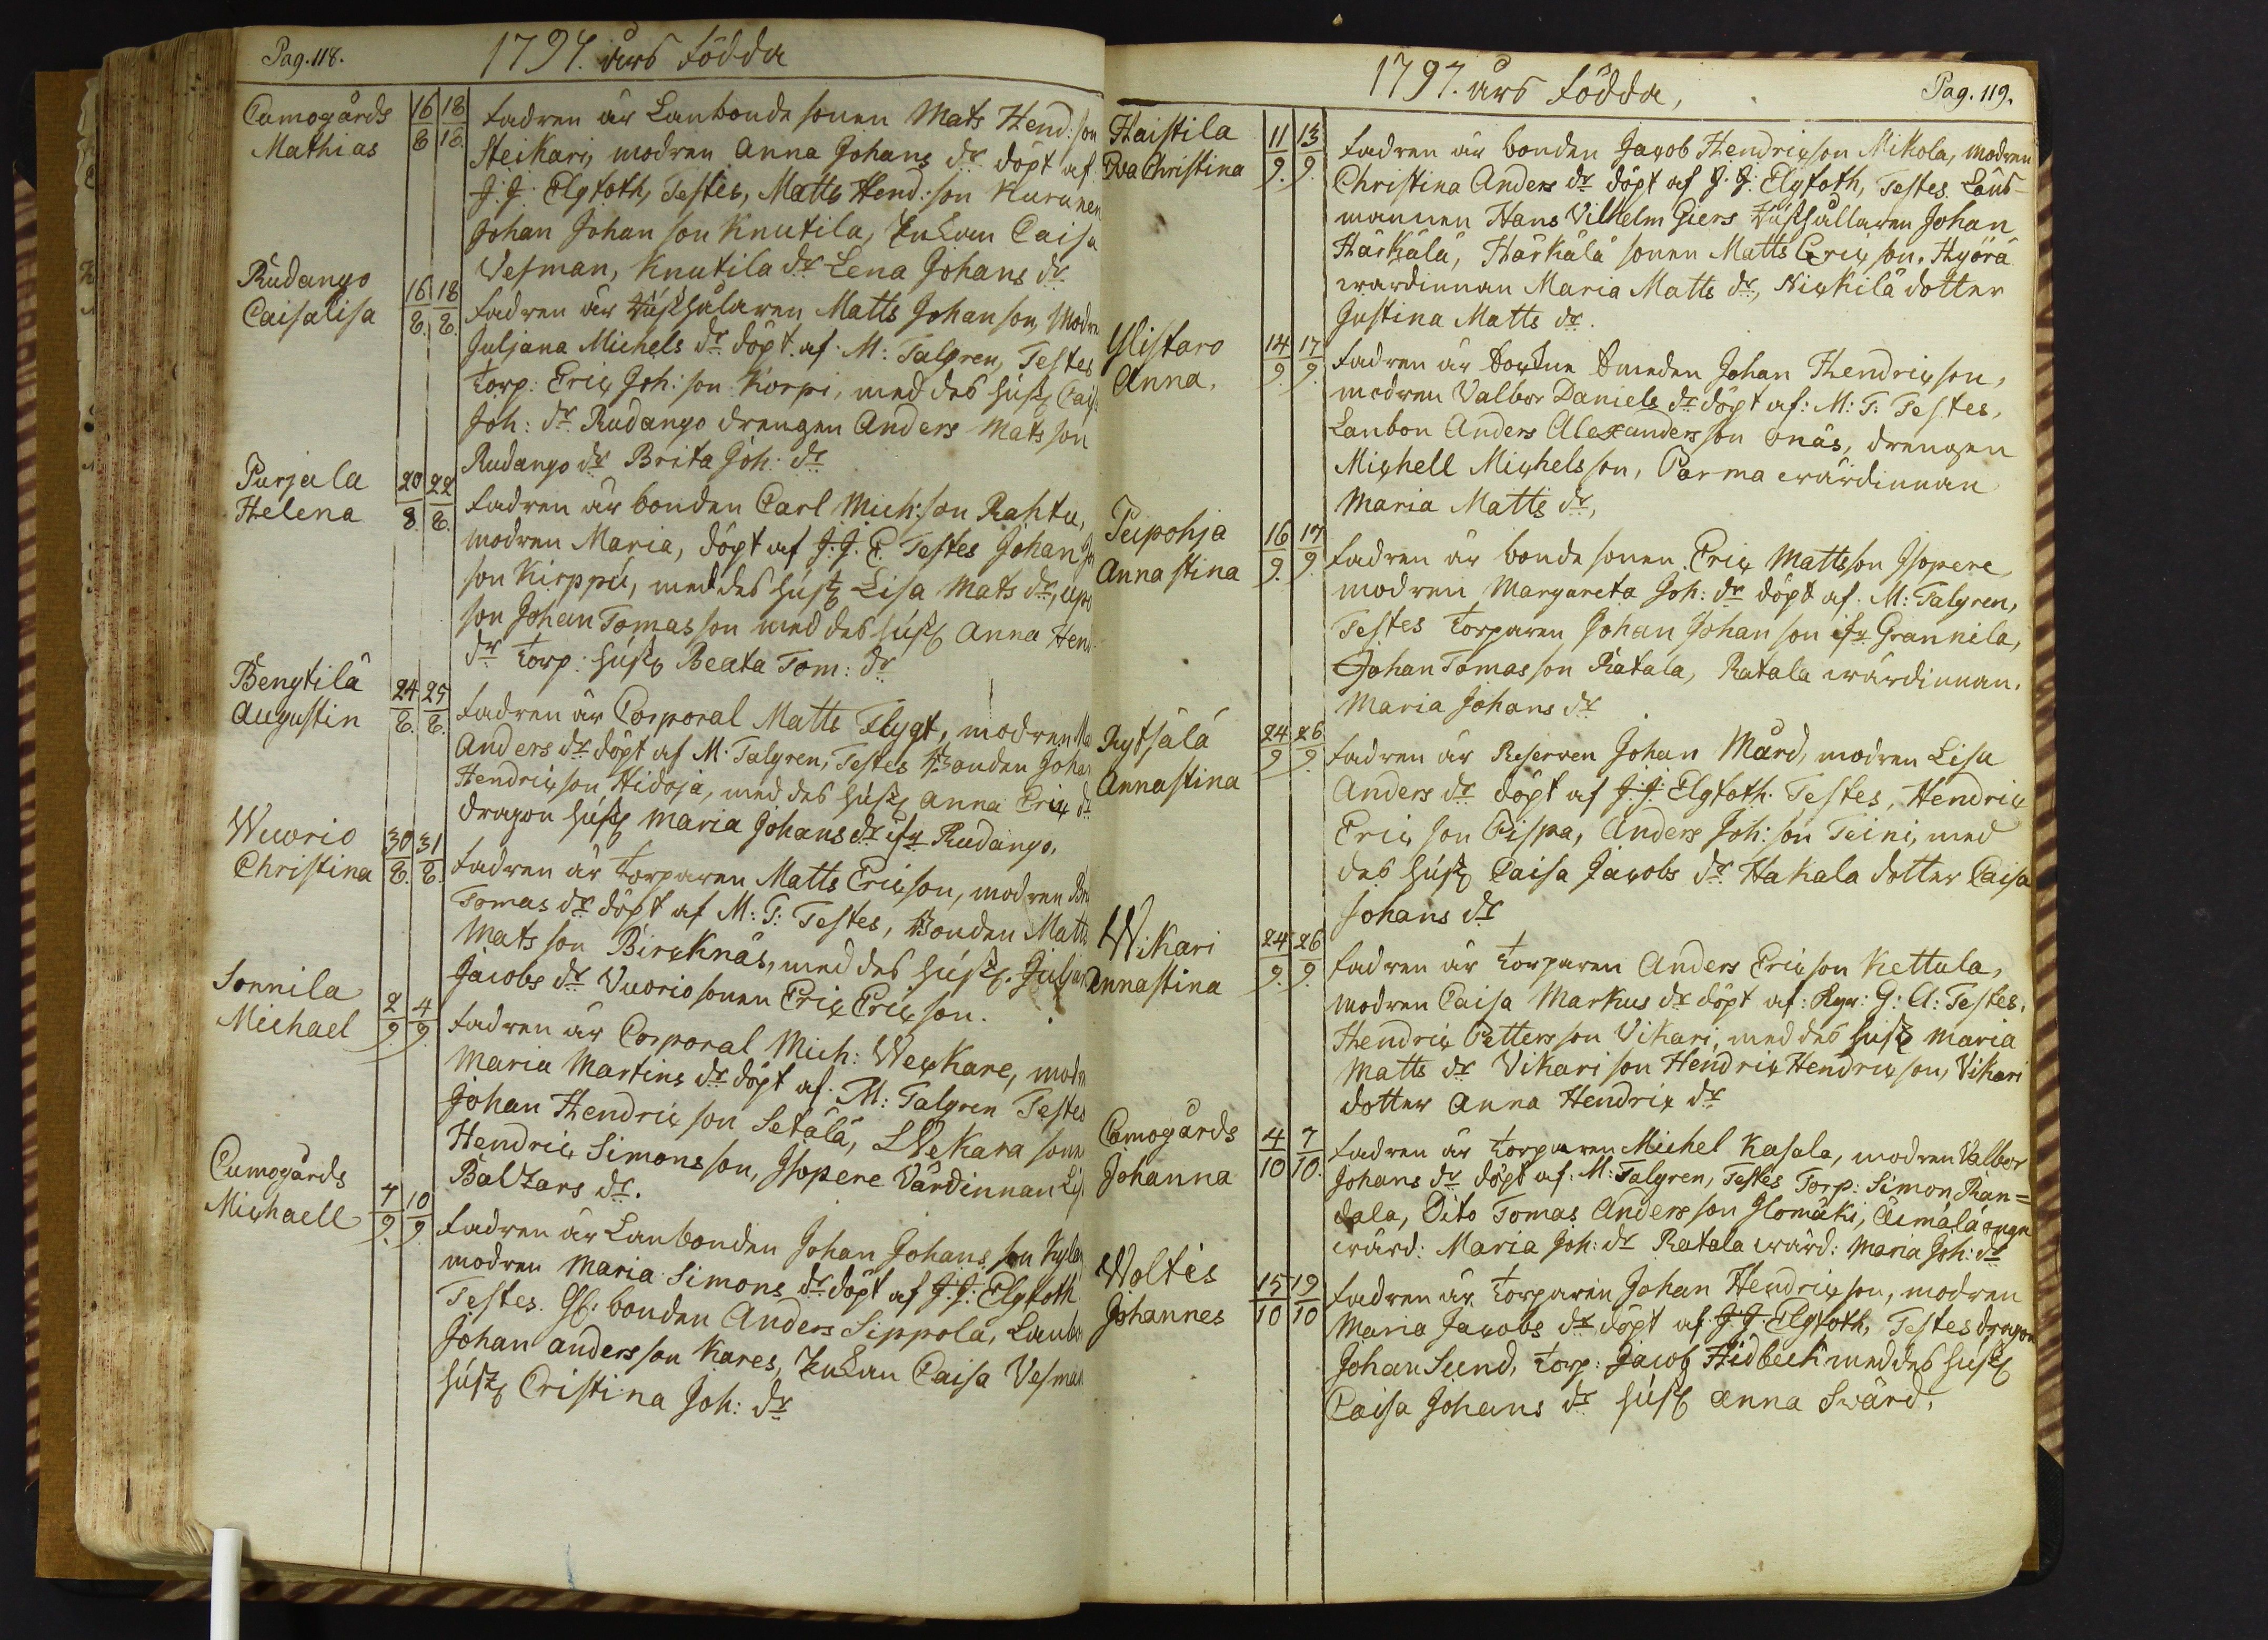 Pag. 118.
1797. års födda
Cumogårds
Mathias
16/8 18/8
fadren är Lanbonde sonen Mats Hend: son
Steikari, modren Anna Johans dr döpt af
J. J. Elgfoth, Testes, Matts Hend: son Kurunen
Johan Johan son Knutila, Enkan Caisa
Vesman, Knutila dr Lena Johans dr
Rudango
Caisalisa
16/8 18/8
fadren är Hushålaren Matts Johan son, Modre
Juljana Michels dr döpt af M: Talgren, Testes
torp: Eric Joh: son Korpi, med des hust
Joh: dr Rudango drengen Anders Mats son
Rudango dr Brita Joh: dr
Purjala
Helena
20/8 22/8
fadren är bonden Carl Mich: son Rahtu,
modren Maria, döpt af J. J. E. Testes Johan
son Kirppu, med des hust Lisa Mats dr,
son Johan Tomas son med des hust Anna Hend
dr torp: hust Beata Tom: dr
Bengtilä
Augustin
24/8 25/8
fadren är Corporal Matts Flygt, modren
Anders dr döpt af M. Talgren, Testes Bonden Johan
Hendric son Hidoja, med des hust Anna Eric dr
dragon hust Maria Johans dr ifr Rudango,
Wuorio
Christina
30/8 31/8
fadren är torparen Matts Ericson, modren
Tomas dr döpt af M: T: Testes, Bonden Matts
Mats son Bircknäs, med des hust Juljan
Jacobs dr Vuorio sonen Eric Ericson.
Sonnila
Michael
2/9 4/9
fadren är Corporal Mich: Weckare, modr
Maria Martins dr döpt af M: Talgren Testes
Johan Hendric son Setälä, LWekara sonn
Hendric Simonsson, Isopere Värdinnan Lis
Baltzars dr.
Cumogårds
Michaell
7/9 10/9
fadren är Lanbonden Johan Johans son
modren Maria Simons dr döpt af J. J. Elgfoth
Testes. bonden Anders Sippola, Lanbon
Johan anders son Kares, Enkan Caisa Vesman
hust Cristina Joh: dr
1797. års födda,
Pag. 119.
Haistila
Eva Christina
11/9 13/9
fadren är bonden Jacob Hendricson Mikola, modren
Christina Anders dr döpt af J. J. Elgfoth, Testes Läns-
mannen Hans Vilhelm Giers Hushållaren Johan
Härkälä, Härkälä sonen Matts Ericson, Hyörä
wärdinnan Maria Matts dr, Nickilä dotter
Justina Matts dr.
Ylistaro
Anna.
14/9 17/9
fadren är Sockne Smeden Johan Hendricson,
modren Valbor Daniels dr döpt af: M: T: Testes,
Lanbon Anders Alexanders son Onäs, drengen
Michell Michelsson, Parma wärdinnan
Maria Matts dr,
Peipohja
Annastina
16/9 17/9
fadren är bonde sonen Eric Mattsson Isopere
modren Margareta Joh: dr döpt af M: Talgren,
Testes torparen Johan Johan son ifr Grannila,
Johan Tomas son Ratala, Ratala wärdinnan.
Maria Johans dr
Rytsälä
Annastina
24/9 26/9
fadren är Reserven Johan Mård, modren Lisa
Anders dr döpt af J. J. Elgfoth. Testes, Hendric
Eric son Pispa, Anders Joh: son Teini, med
des hust Caisa Jacobs dr Hakala dotter Caisa
Johans dr
Wikari
Annastina
24/9 26/9
fadren är torparen Anders Ericson Kettula,
modren Caisa Markus dr döpt af: Rgr: G: A: Testes,
Hendric Pettersson Vikari, med des hust Maria
Matts dr Vikari son Hendric Hendricson, Vikari
dotter Anna Hendric dr
Cumogårds
Johanna
4/10 7/10
fadren är torparen Michel Kasala, modren Valbor
Johans dr döpt af M: Talgren, Testes Torp: Simon Ran=
dala, Dito Tomas Anders son Ilomäki,
wärd: Maria Joh: dr Ratala wärd: Maria Joh: dr
Woltis
Johannes
15/10 19/10
fadren är torparen Johan Hendricson, modren
Maria Jacobs dr döpt af J. J. Elgfoth, Testes dragon
Johan Sund, torp: Jacob Hidbeck med des hust
Caisa Johans dr hust Anna Swärd.